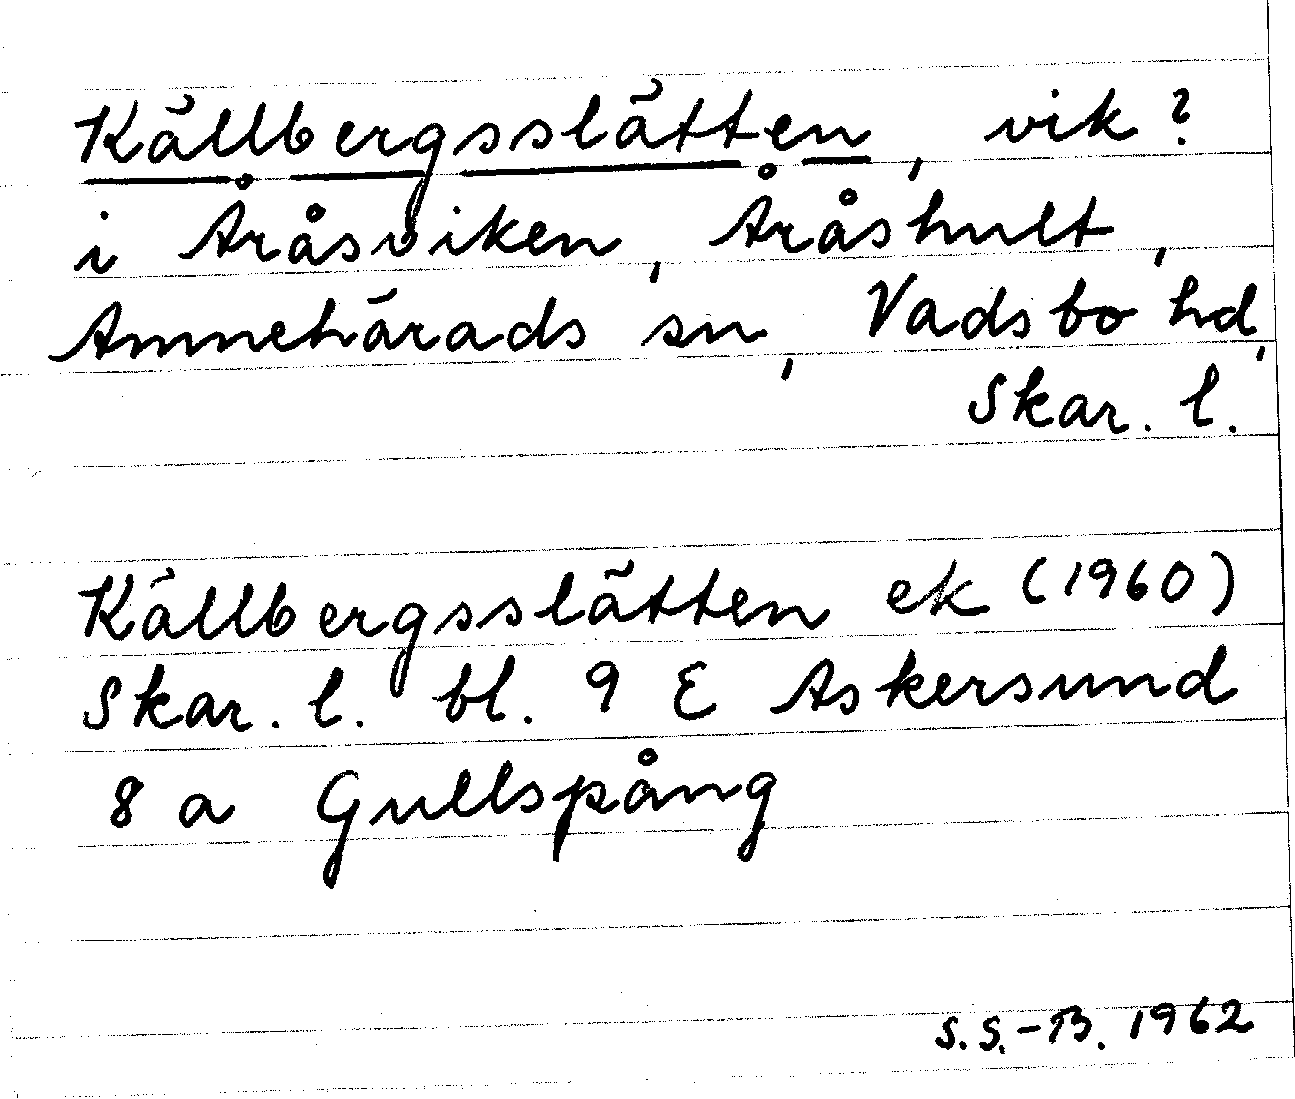 Källbergsslätten, vik?
i Åråsviken, Åråshult,
Amnehärads sn, Vadsbo hd,
Skar. l.
Källbergsslätten ek (1960)
Skar. l. bl. 9 E Askersund
8 a Gullspång
S.S.-B. 1962